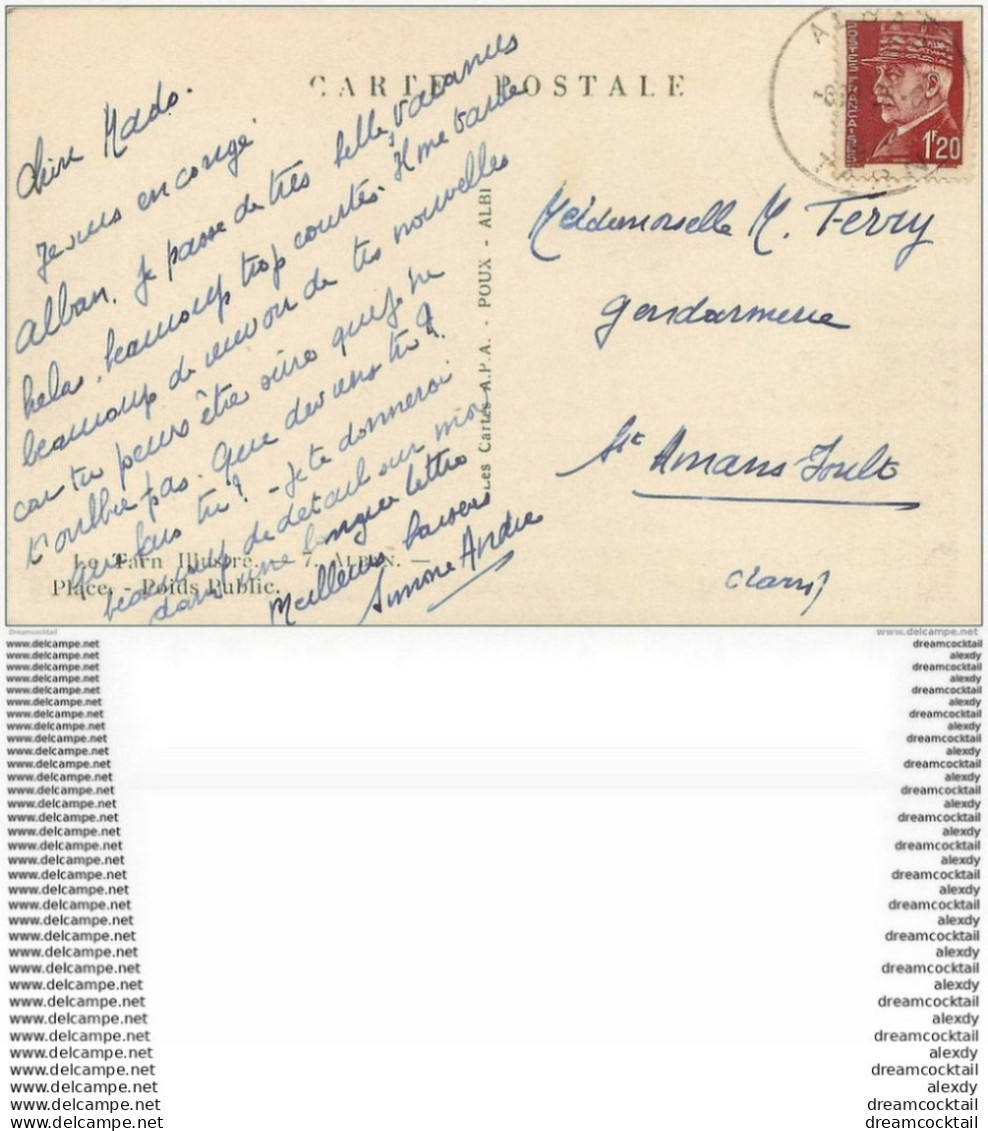 CARTE POSTALE
POSTES FRANÇAISES
1F20
ALBAN
TARN
Mado.
Je suis en congé
alban. Je passe de très belles vacances
helas, beaucoup trop courtes. Il me tarde
beaucoup de savoir de tes nouvelles
car tu peux être sûre que je ne
t'oublie pas. Que deviens tu ?
que fais tu ? - Je te donnerai
beaucoup de détail sur moi
dans une longue lettre
Meilleurs baisers
Simone Andre
Les Cartes A.P.A. - POUX - ALBI
Mademoiselle M. Ferry
gendarmerie
St Amans Soult
(Tarn)
Le Tarn Illustré. - 7. ALBAN. —
Place. - Poids Public.
Dreamcocktail
www.delcampe.net
www.delcampe.net dreamcocktail
www.delcampe.net alexdy
www.delcampe.net dreamcocktail
www.delcampe.net alexdy
www.delcampe.net dreamcocktail
www.delcampe.net alexdy
www.delcampe.net dreamcocktail
www.delcampe.net alexdy
www.delcampe.net dreamcocktail
www.delcampe.net alexdy
www.delcampe.net dreamcocktail
www.delcampe.net alexdy
www.delcampe.net dreamcocktail
www.delcampe.net alexdy
www.delcampe.net dreamcocktail
www.delcampe.net alexdy
www.delcampe.net dreamcocktail
www.delcampe.net alexdy
www.delcampe.net dreamcocktail
www.delcampe.net alexdy
www.delcampe.net dreamcocktail
www.delcampe.net alexdy
www.delcampe.net dreamcocktail
www.delcampe.net alexdy
www.delcampe.net dreamcocktail
www.delcampe.net alexdy
www.delcampe.net dreamcocktail
www.delcampe.net alexdy
www.delcampe.net dreamcocktail
www.delcampe.net alexdy
www.delcampe.net dreamcocktail
www.delcampe.net alexdy
www.delcampe.net dreamcocktail
www.delcampe.net alexdy
www.delcampe.net dreamcocktail
www.delcampe.net dreamcocktail